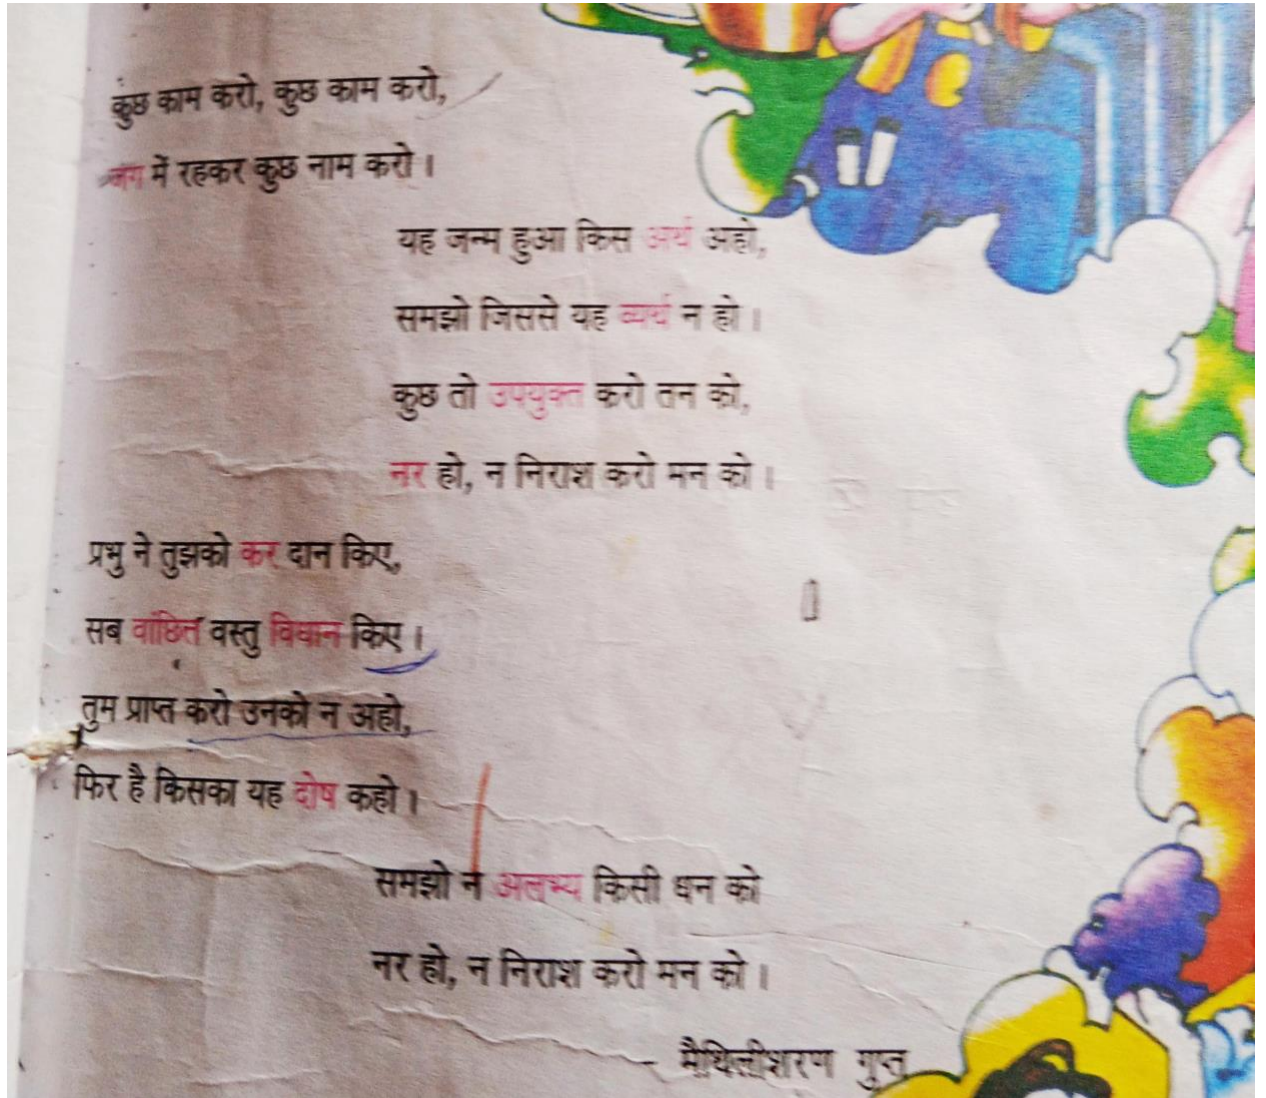 कुछ काम करो, कुछ काम करो,
जग में रहकर कुछ नाम करो ।
यह जन्म हुआ किस अर्थ अहो,
समझो जिससे यह व्यर्थ न हो ।
कुछ तो उपयुक्त करो तन को,
नर हो, न निराश करो मन को ।
प्रभु ने तुझको कर दान किए,
सब वांछित वस्तु विधान किए ।
तुम प्राप्त करो उनको न अहो,
फिर है किसका यह दोष कहो ।
समझो न अलभ्य किसी धन को
नर हो, न निराश करो मन को ।
- मैथिलीशरण गुप्त